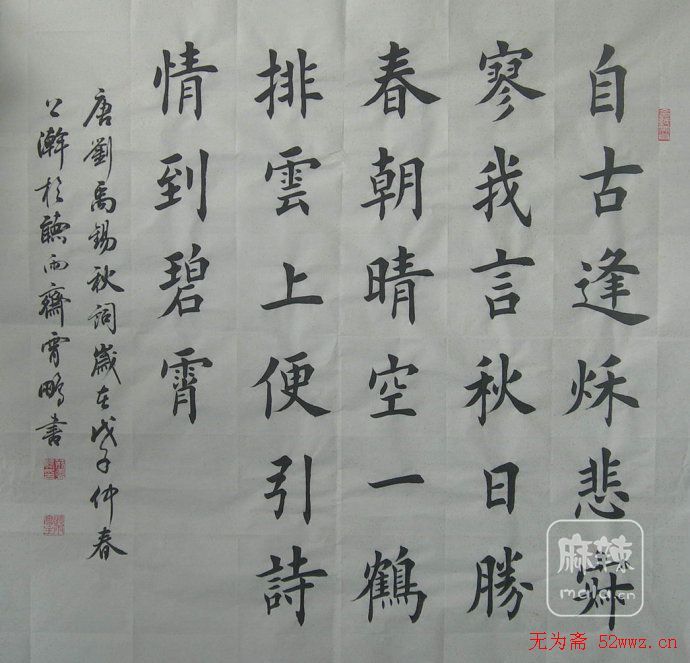 自古逢秌悲寂
寥我言秋日勝
春朝晴空一鶴
排雲上便引詩
情到碧霄
唐劉禹錫秋詞歲在戊子仲春
公瀚於聽雨齋霄鵬書
麻辣
mala.cn
无为斋 52wwz.cn